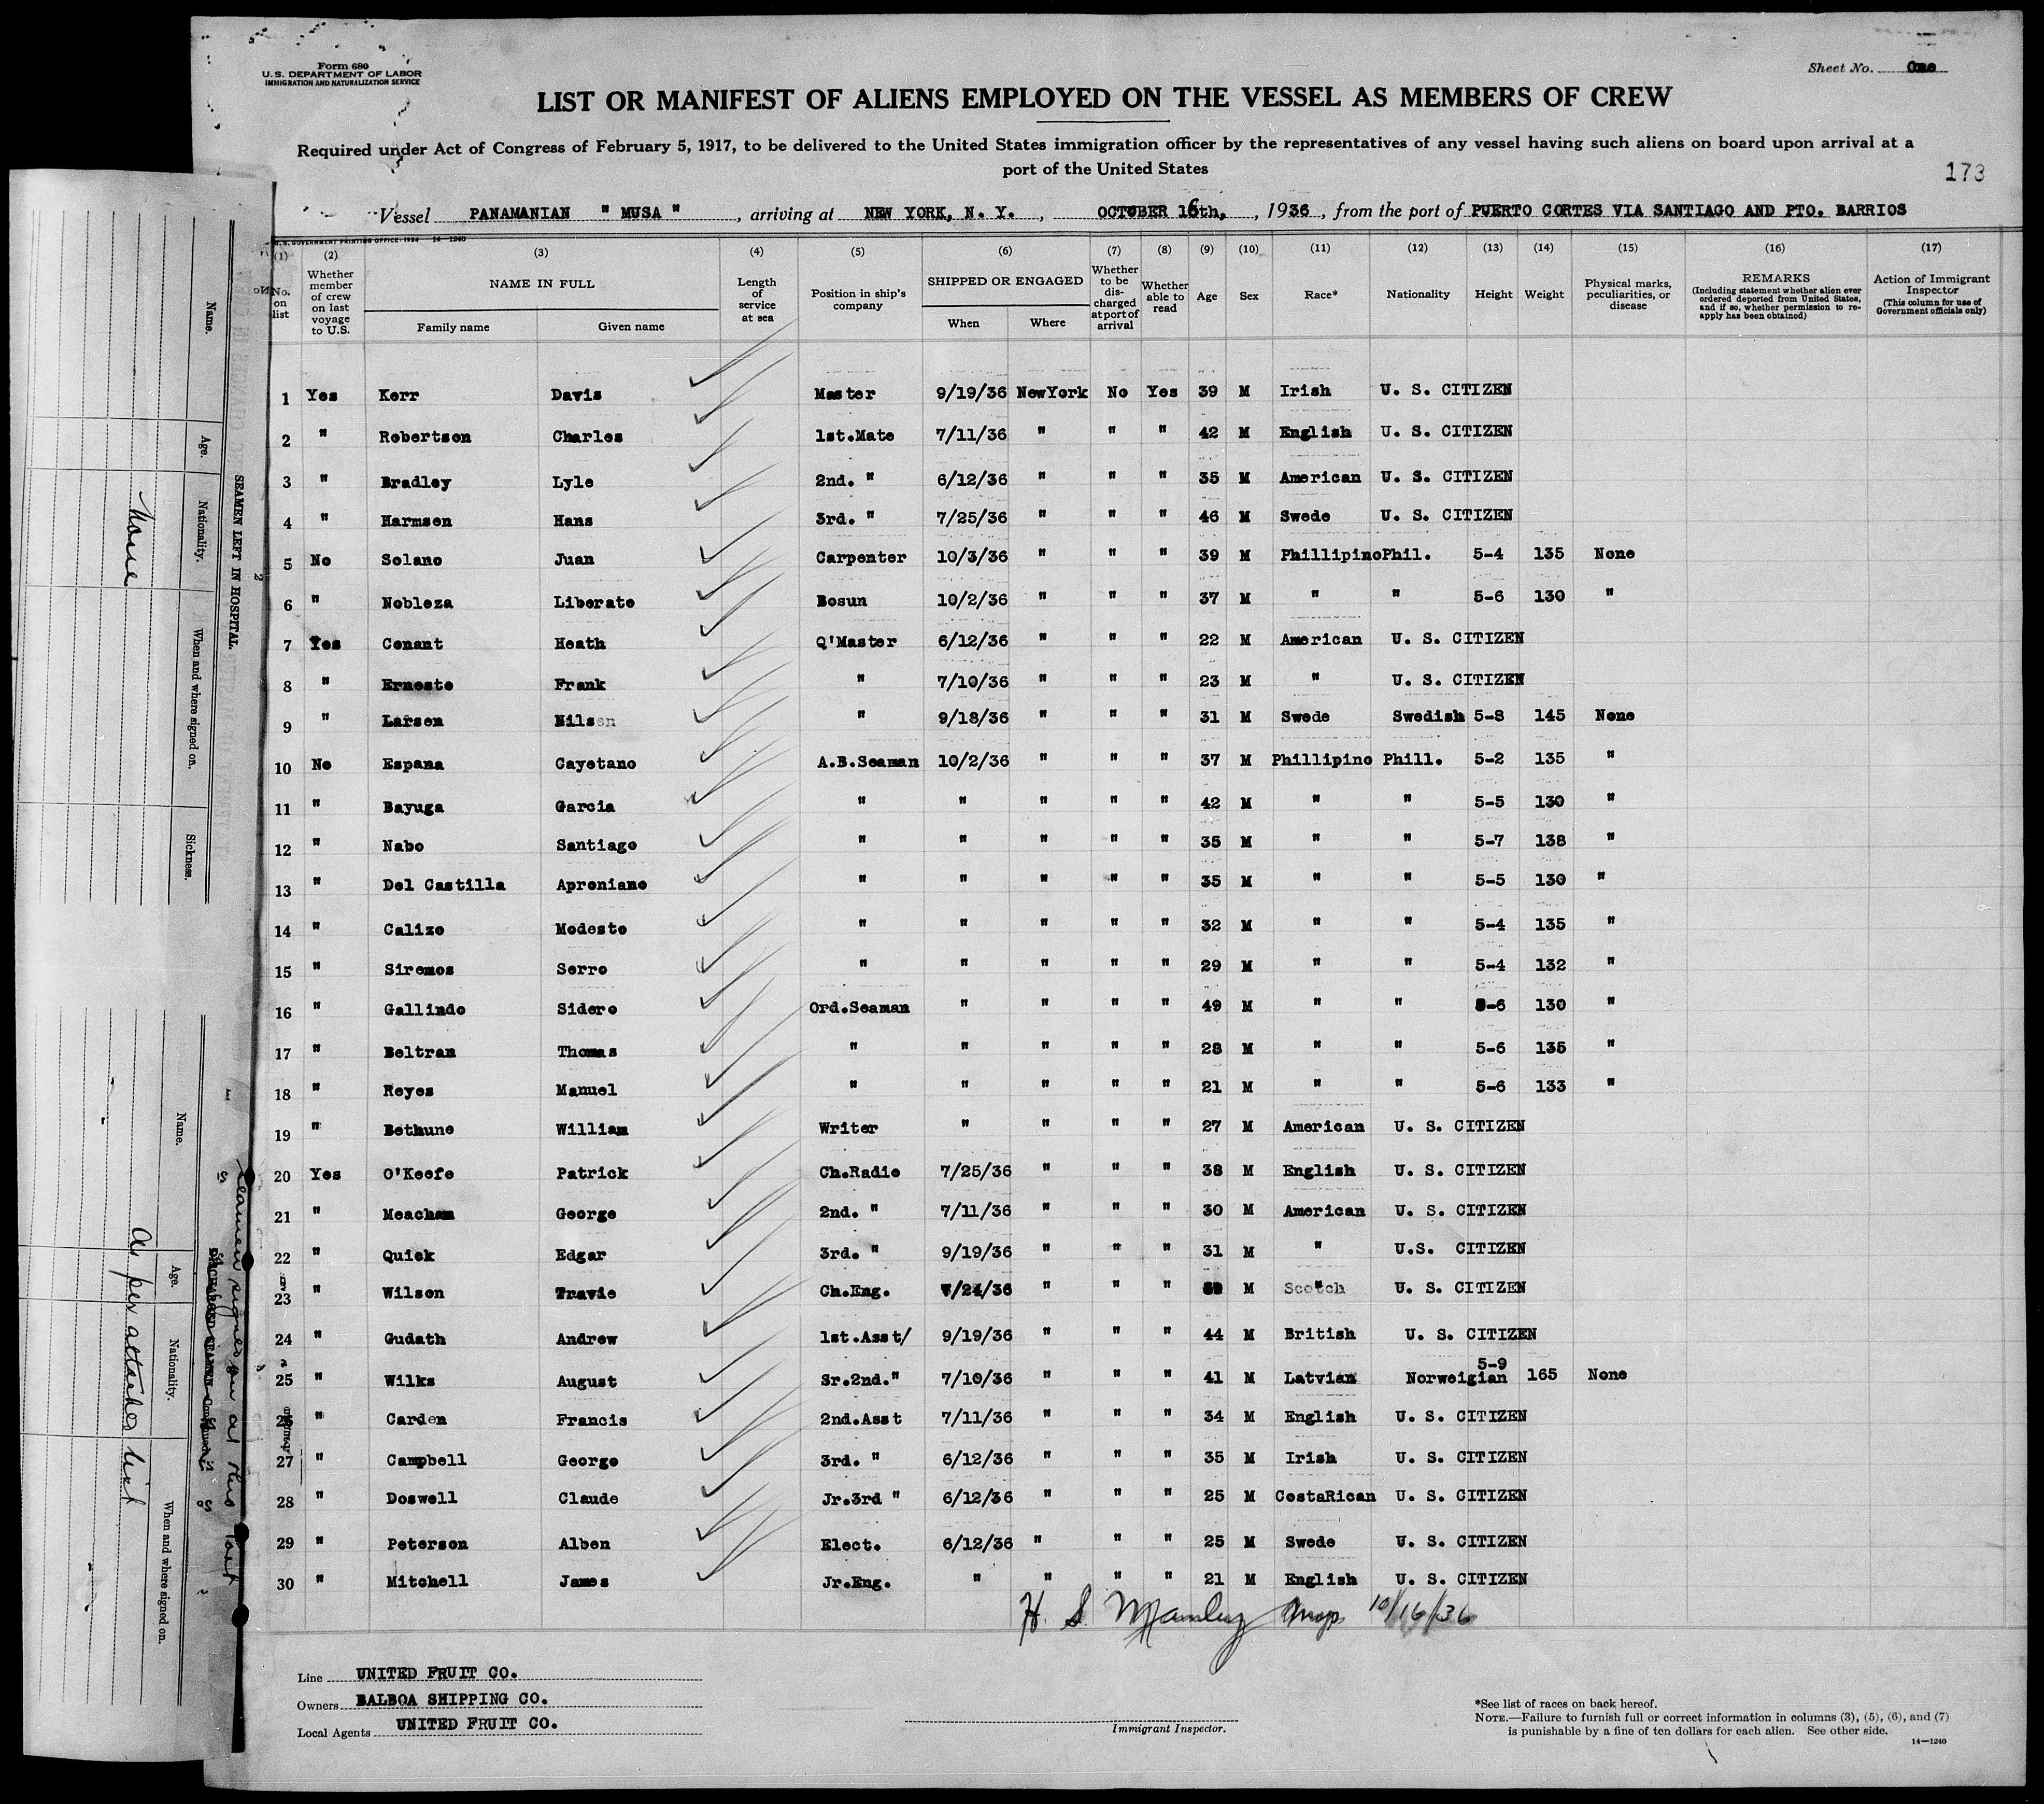 Form 680
U. S. DEPARTMENT OF LABOR
IMMIGRATION AND NATURALIZATION SERVICE
Sheet No. One
LIST OR MANIFEST OF ALIENS EMPLOYED ON THE VESSEL AS MEMBERS OF CREW
Required under Act of Congress of February 5, 1917, to be delivered to the United States immigration officer by the representatives of any vessel having such aliens on board upon arrival at a
port of the United States
173
Vessel PANAMANIAN " MUSA ", arriving at NEW YORK, N. Y., OCTOBER 16th, , 1936, from the port of PUERTO CORTES VIA SANTIAGO AND PTO. BARRIOS
U. S. GOVERNMENT PRINTING OFFICE: 1934 14—1240
(1) (2) (3) (4) (5) (6) (7) (8) (9) (10) (11) (12) (13) (14) (15) (16) (17)
No. on list
Whether member of crew on last voyage to U.S.
NAME IN FULL
Family name Given name
Length of service at sea
Position in ship's company
SHIPPED OR ENGAGED
When Where
Whether to be discharged at port of arrival
Whether able to read
Age
Sex
Race*
Nationality
Height
Weight
Physical marks, peculiarities, or disease
REMARKS
(Including statement whether alien ever ordered deported from United States, and if so, whether permission to reapply has been obtained)
Action of Immigrant Inspector
(This column for use of Government officials only)
1 Yes Kerr Davis Master 9/19/36 NewYork No Yes 39 M Irish U. S. CITIZEN
2 " Robertson Charles 1st.Mate 7/11/36 " " " 42 M English U. S. CITIZEN
3 " Bradley Lyle 2nd. " 6/12/36 " " " 35 M American U. S. CITIZEN
4 " Harmsen Hans 3rd. " 7/25/36 " " " 46 M Swede U. S. CITIZEN
5 No Solano Juan Carpenter 10/3/36 " " " 39 M Phillipino Phil. 5-4 135 None
6 " Nobleza Liberato Bosun 10/2/36 " " " 37 M " " 5-6 130 "
7 Yes Conant Heath Q'Master 6/12/36 " " " 22 M American U. S. CITIZEN
8 " Ernesto Frank " 7/10/36 " " " 23 M " U. S. CITIZEN
9 " Larsen Nilsen " 9/18/36 " " " 31 M Swede Swedish 5-8 145 None
10 No Espana Cayetano A.B.Seaman 10/2/36 " " " 37 M Phillipino Phill. 5-2 135 "
11 " Bayuga Garcia " " " " " 42 M " " 5-5 130 "
12 " Nabo Santiago " " " " " 35 M " " 5-7 138 "
13 " Del Castilla Aproniano " " " " " 35 M " " 5-5 130 "
14 " Calizo Modesto " " " " " 32 M " " 5-4 135 "
15 " Siremos Serro " " " " " 29 M " " 5-4 132 "
16 " Gallindo Sidero Ord.Seaman " " " " 49 M " " 5-6 130 "
17 " Beltran Thomas " " " " " 28 M " " 5-6 135 "
18 " Reyes Manuel " " " " " 21 M " " 5-6 133 "
19 " Bethune William Writer " " " " 27 M American U. S. CITIZEN
20 Yes O'Keefe Patrick Ch.Radio 7/25/36 " " " 38 M English U. S. CITIZEN
21 " Meacham George 2nd. " 7/11/36 " " " 30 M American U. S. CITIZEN
22 " Quick Edgar 3rd. " 9/19/36 " " " 31 M " U.S. CITIZEN
23 " Wilson Travis Ch.Eng. 7/24/36 " " " M Scotch U. S. CITIZEN
24 " Gudath Andrew 1st.Asst/ 9/19/36 " " " 44 M British U. S. CITIZEN
25 " Wilks August Sr.2nd." 7/10/36 " " " 41 M Latvian Norweigian 5-9 165 None
26 " Carden Francis 2nd.Asst 7/11/36 " " " 34 M English U. S. CITIZEN
27 " Campbell George 3rd. " 6/12/36 " " " 35 M Irish U. S. CITIZEN
28 " Doswell Claude Jr.3rd " 6/12/36 " " " 25 M CostaRican U. S. CITIZEN
29 " Peterson Alben Elect. 6/12/36 " " " 25 M Swede U. S. CITIZEN
30 " Mitchell James Jr.Eng. " " " " 21 M English U. S. CITIZEN
H. S. Manley Insp. 10/16/36
Line UNITED FRUIT CO.
Owners BALBOA SHIPPING CO.
Local Agents UNITED FRUIT CO.
Immigrant Inspector.
*See list of races on back hereof.
NOTE.—Failure to furnish full or correct information in columns (3), (5), (6), and (7)
is punishable by a fine of ten dollars for each alien. See other side.
14—1240
SEAMEN LEFT IN HOSPITAL
Name. Age. Nationality. When and where signed on. Sickness.
None
Seamen signed on at this Port
Name. Age. Nationality. When and where signed on.
As per attached list